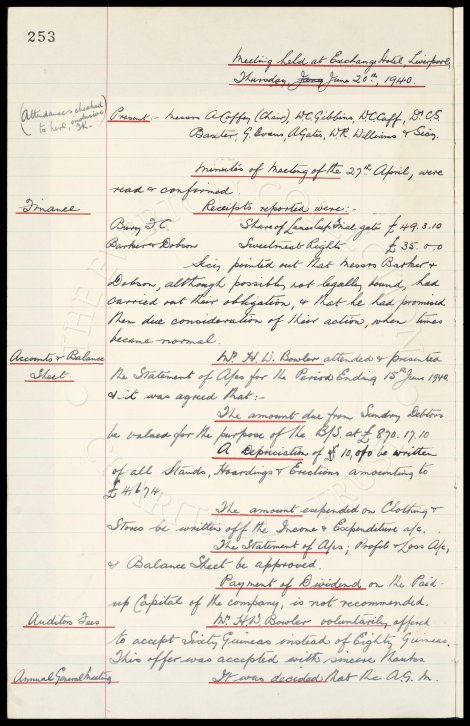 253
Meeting held at Exchange Hotel, Liverpool,
Thursday, June 20th, 1940.
(Attendances checked
to here, inclusive,
Present:- Messrs A Coffey (Chair), W.C. Gibbins, W.C. Cuff, Dr C.S.
Baxter, G. Evans, A Gates, W.R. Williams & Secy.
Minutes of Meeting of the 27th April, were
read & confirmed
Finance
Receipts reported were:-
Bury F.C. Share of Lancs Cup Final gate £49.3.10
Barker & Dobson Sweetmeat Rights £35.0.0
Secy pointed out that Messrs Barker &
Dobson, although possibly not legally bound, had
carried out their obligation, & that he had promised
them due consideration of their action, when times
became normal.
Accounts & Balance
Sheet.
Mr H. W. Bowler attended & presented
the Statement of A/cs for the Period Ending 15th June 1940.
& it was agreed that:-
The amount due from Sundry Debtors
be valued for the purpose of the B/S. at £870.17.10
A Depreciation of £10, be written
of all Stands, Hoardings & Erections amounting to
£4674.
The amount expended on Clothing &
Stores be written off the Income & Expenditure a/c.
The Statement of A/cs; Profit & Loss A/c,
& Balance Sheet be approved.
Payment of Dividend on the Paid-
up Capital of the company, is not recommended.
Auditors Fees
Mr. H.W. Bowler voluntarily offered
to accept Sixty Guineas instead of Eighty Guineas.
This offer was accepted with sincere thanks
Annual General Meeting
It was decided that the A.G.M.